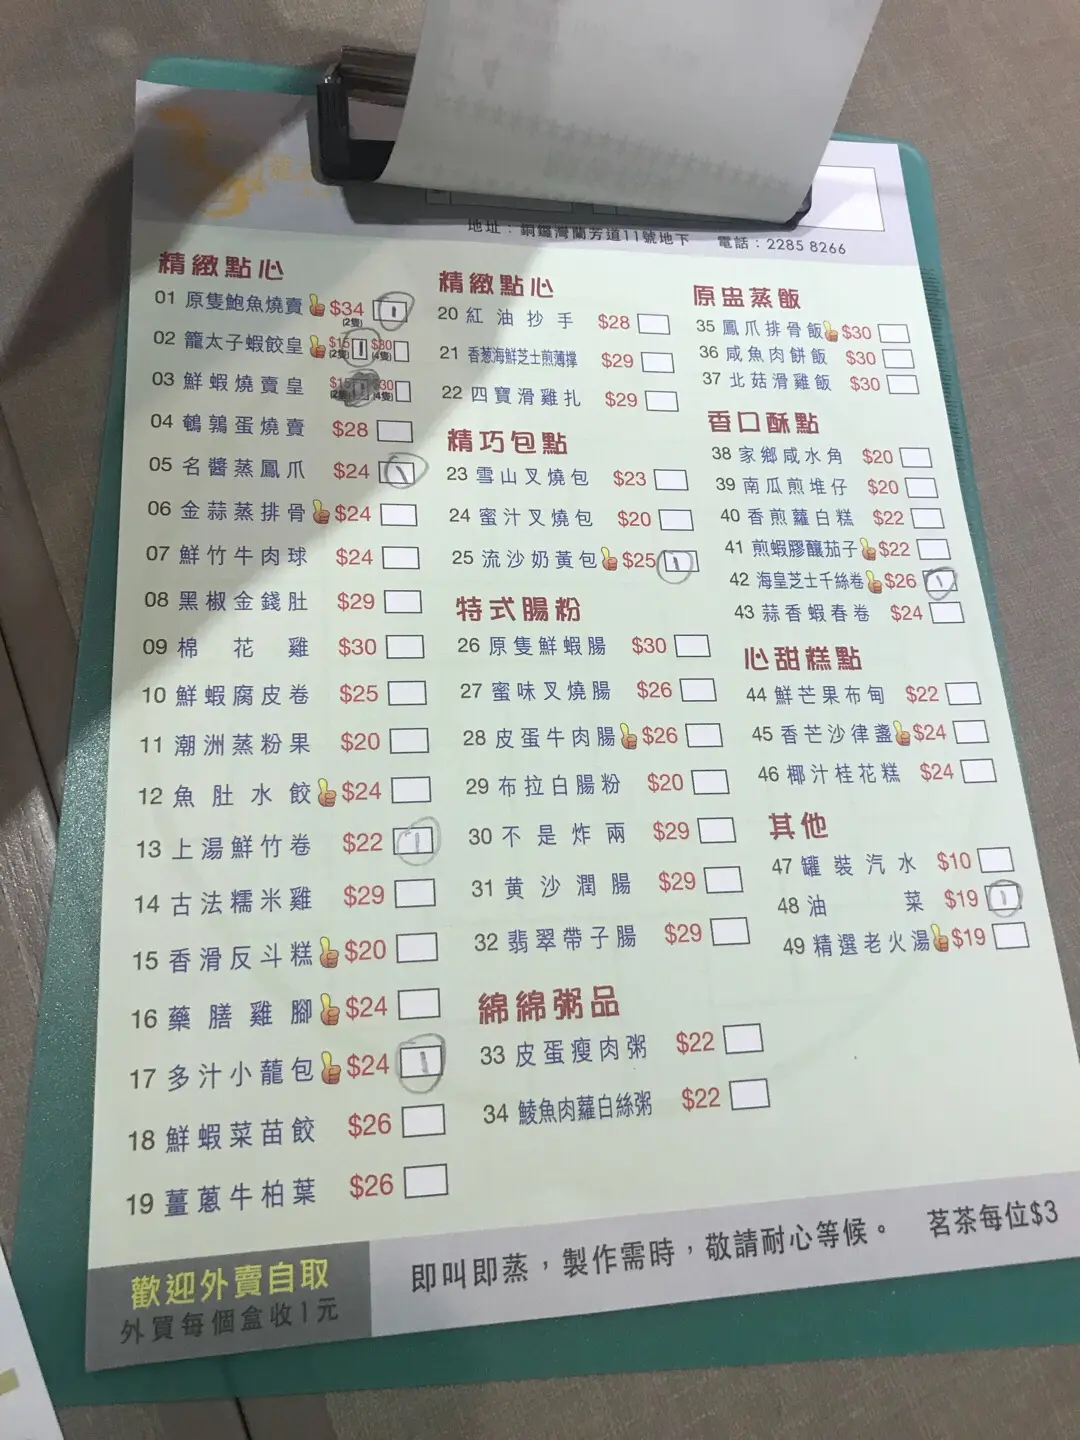 地址：銅鑼灣蘭芳道11號地下 電話：2285 8266
精緻點心
01 原隻鮑魚燒賣 $34 (2隻) 1
02 籠太子蝦餃皇 $15 (2隻) 1 $30 (4隻)
03 鮮蝦燒賣皇 $15 (2隻) $30 (4隻)
04 鵪鶉蛋燒賣 $28
05 名醬蒸鳳爪 $24 1
06 金蒜蒸排骨 $24
07 鮮竹牛肉球 $24
08 黑椒金錢肚 $29
09 棉花雞 $30
10 鮮蝦腐皮卷 $25
11 潮洲蒸粉果 $20
12 魚肚水餃 $24
13 上湯鮮竹卷 $22 1
14 古法糯米雞 $29
15 香滑反斗糕 $20
16 藥膳雞腳 $24
17 多汁小蘢包 $24 1
18 鮮蝦菜苗餃 $26
19 薑蔥牛柏葉 $26
精緻點心
20 紅油抄手 $28
21 香葱海鮮芝士煎薄撑 $29
22 四寶滑雞扎 $29
精巧包點
23 雪山叉燒包 $23
24 蜜汁叉燒包 $20
25 流沙奶黃包 $25 1
特式腸粉
26 原隻鮮蝦腸 $30
27 蜜味叉燒腸 $26
28 皮蛋牛肉腸 $26
29 布拉白腸粉 $20
30 不是炸兩 $29
31 黄沙潤腸 $29
32 翡翠帶子腸 $29
綿綿粥品
33 皮蛋瘦肉粥 $22
34 鯪魚肉蘿白絲粥 $22
原盅蒸飯
35 鳳爪排骨飯 $30
36 咸魚肉餅飯 $30
37 北菇滑雞飯 $30
香口酥點
38 家鄉咸水角 $20
39 南瓜煎堆仔 $20
40 香煎蘿白糕 $22
41 煎蝦膠釀茄子 $22
42 海皇芝士千絲卷 $26 1
43 蒜香蝦春卷 $24
心甜糕點
44 鮮芒果布甸 $22
45 香芒沙律盞 $24
46 椰汁桂花糕 $24
其他
47 罐裝汽水 $10
48 油菜 $19 1
49 精選老火湯 $19
歡迎外賣自取
外買每個盒收1元
即叫即蒸，製作需時，敬請耐心等候。 茗茶每位$3